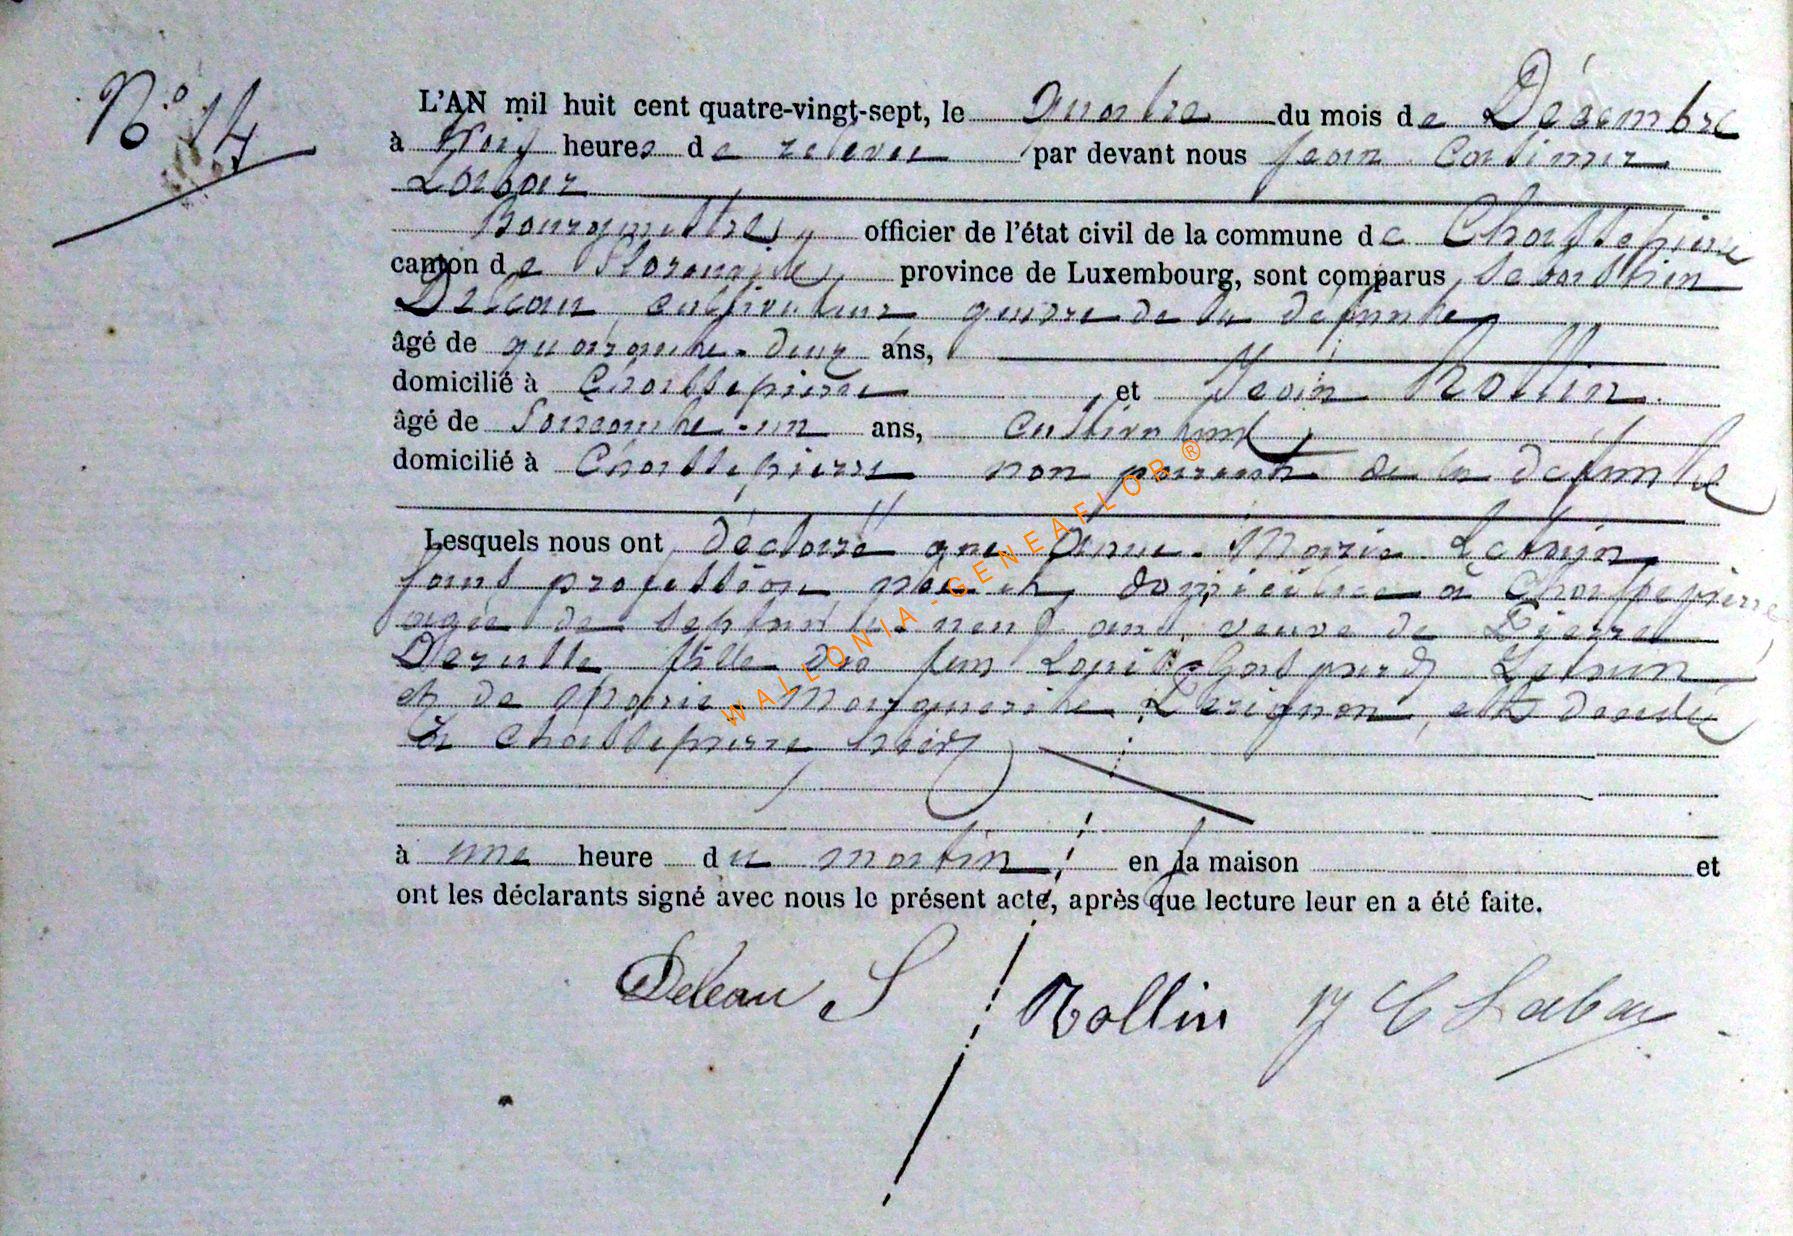 N° 14
L'AN mil huit cent quatre-vingt-sept, le quatre du mois de Décembre
à trois heures de relevée par devant nous Jean Casimir
Labar
Bourgmestre, officier de l'état civil de la commune de Chassepierre
canton de Florenville, province de Luxembourg, sont comparus Sebastien
Deleau cultivateur gendre de la défunte
âgé de quarante-deux ans,
domicilié à Chassepierre et Jean Rollin
âgé de soixante-un ans, cultivateur
domicilié à Chassepierre non parent de la défunte
Lesquels nous ont déclaré que Anne-Marie Lebrun
sans profession née et domiciliée à Chassepierre
agée de septante-neuf ans, veuve de Pierre
fille de feu Louis Gaspard Lebrun
et de Marie Marguerite est décédée
à Chassepierre hier
à une heure du matin, en sa maison et
ont les déclarants signé avec nous le présent acte, après que lecture leur en a été faite.
Deleau S Rollin J C Labar
WALLONIA-GENEAFLOR®